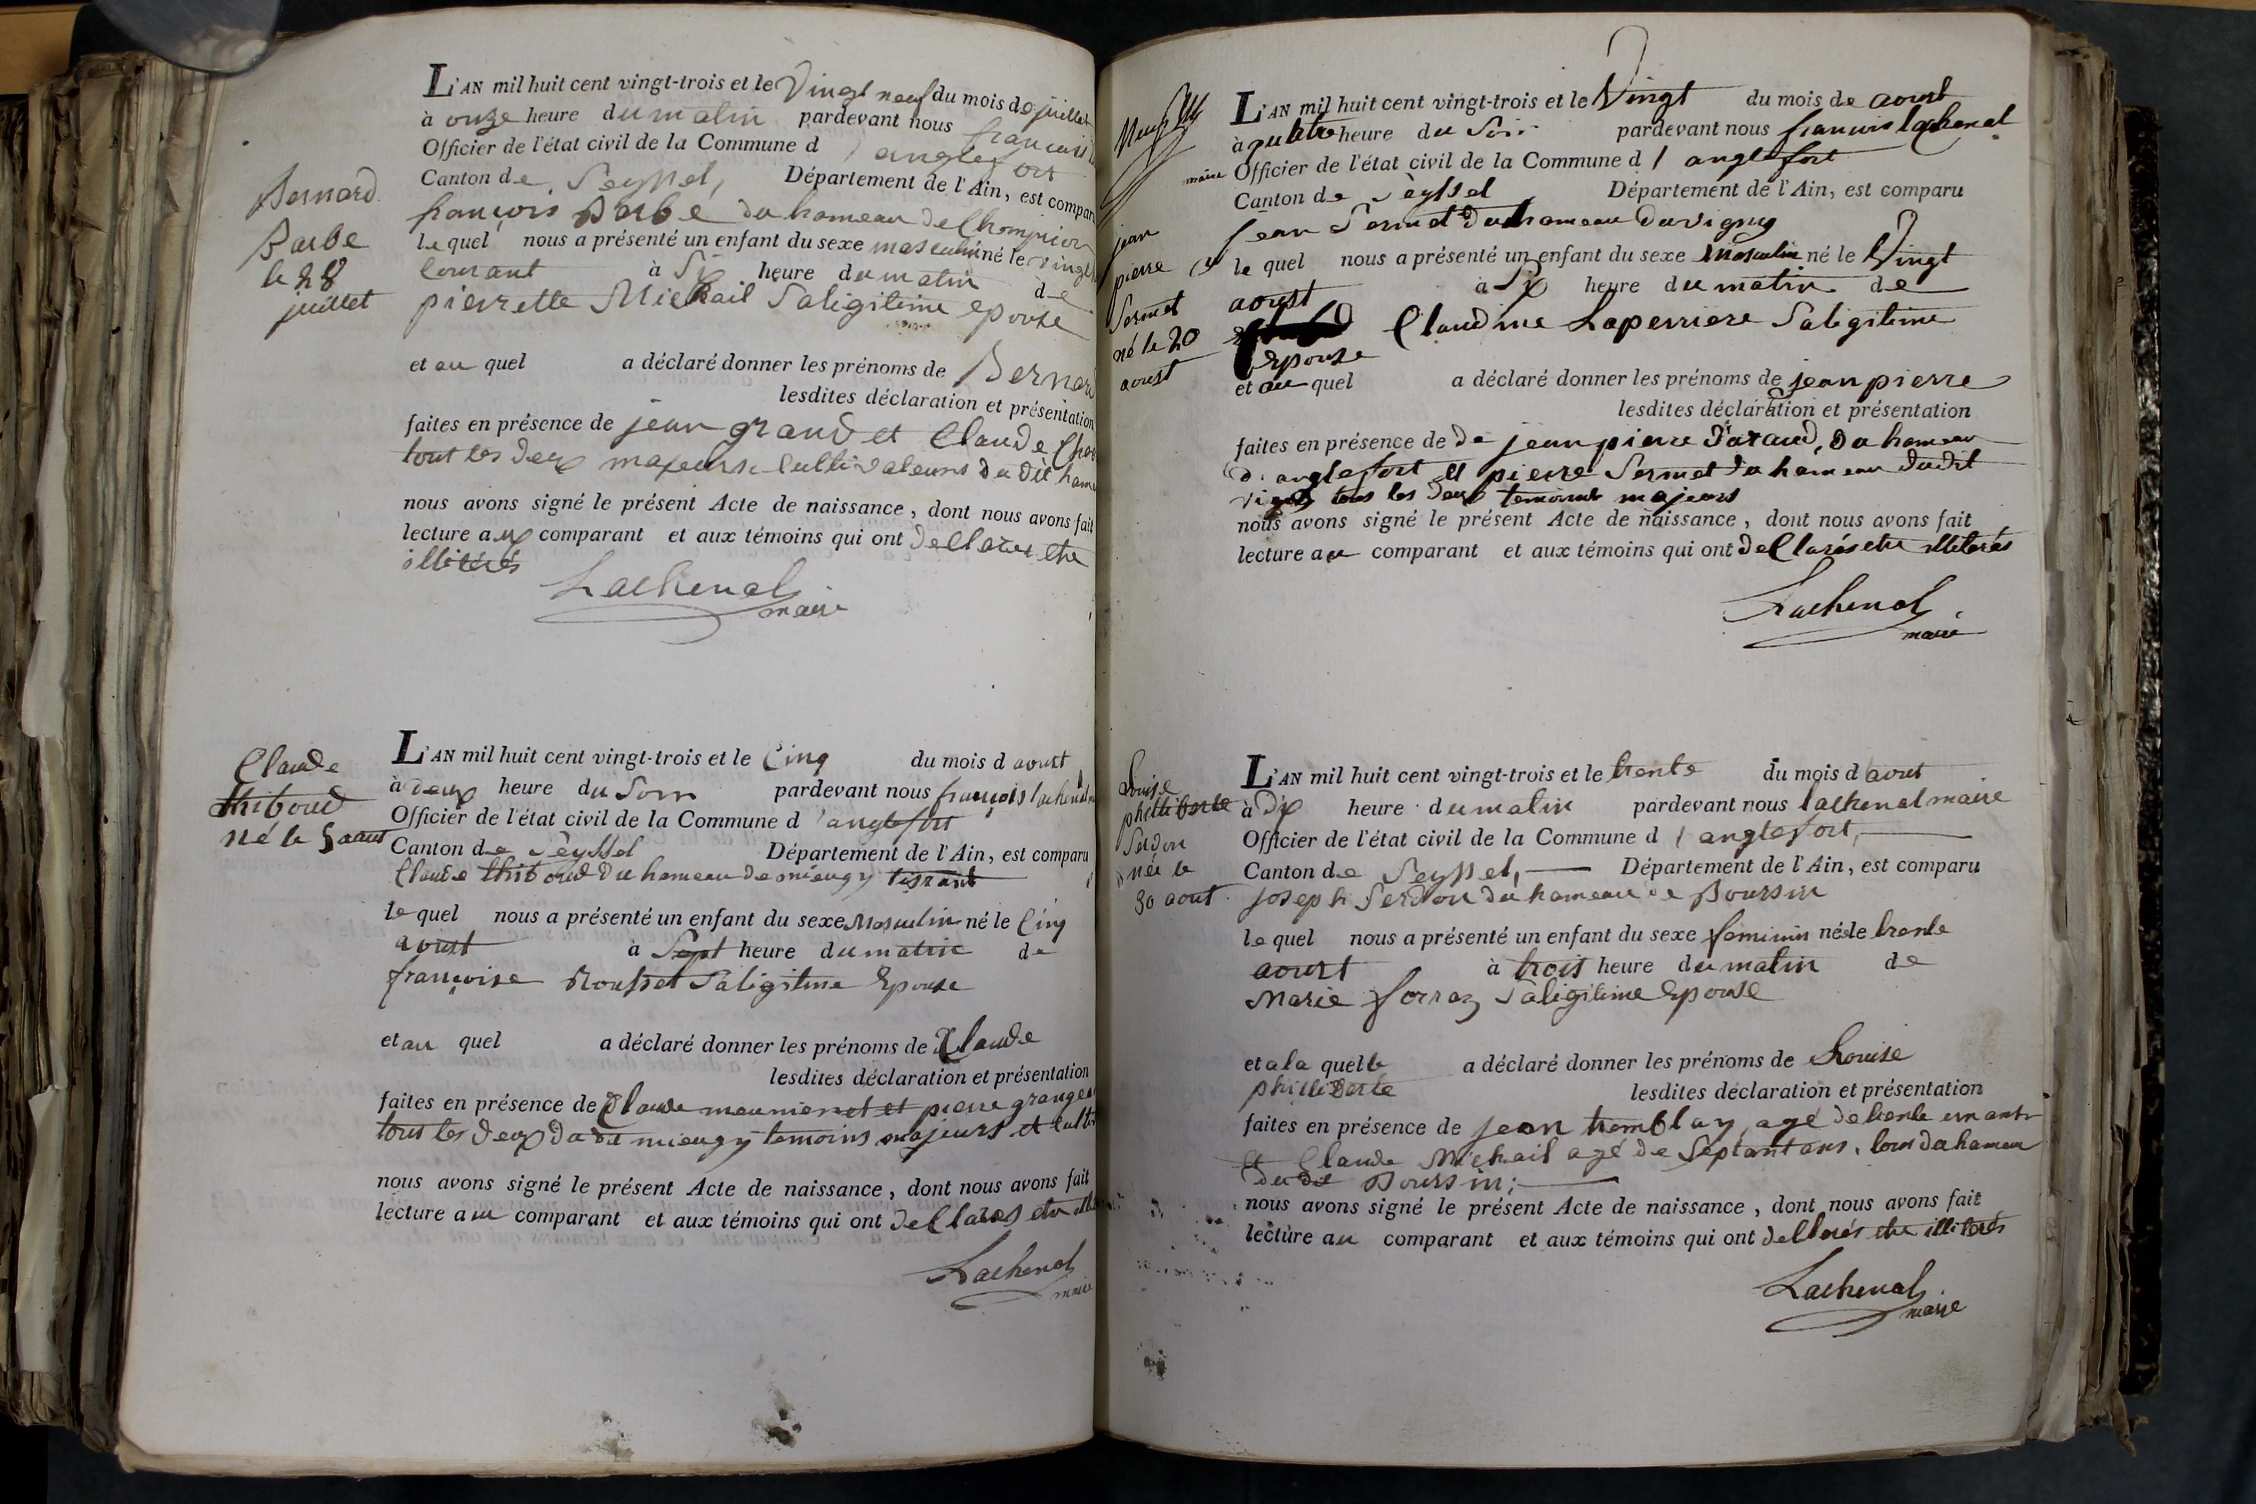 L'AN mil huit cent vingt-trois et le Vingt neuf du mois de juillet
à onze heure du matin pardevant nous françois
Officier de l'état civil de la Commune d'anglefort
Canton de Seyssel, Département de l'Ain, est comparu
françois Barbe du hameau de
le quel nous a présenté un enfant du sexe masculin né le vingt
courant à Six heure du matin de
pierrette Michail Saligitime epouse
et au quel a déclaré donner les prénoms de Bernard
lesdites déclaration et présentation
faites en présence de jean grand et Claude
tout les deux majeurs Cultivateurs du dit
nous avons signé le présent Acte de naissance, dont nous avons fait
lecture aux comparant et aux témoins qui ont declarer etre
illiterés
Lachenal
maire
Bernard
Barbe
le 28
juillet
L'AN mil huit cent vingt-trois et le Cinq du mois d aoust
à deux heure du Soir pardevant nous françois lachenal
Officier de l'état civil de la Commune d'anglefort
Canton de Seyssel Département de l'Ain, est comparu
Claude thiboud du hameau de mieugy tisrand
le quel nous a présenté un enfant du sexe Masculin né le Cinq
aoust à Sept heure du matin de
françoise Rousset Saligitime Epouse
et au quel a déclaré donner les prénoms de Claude
lesdites déclaration et présentation
faites en présence de Claude meunier et pierre
tous les deux du dit mieugy temoins majeurs et
nous avons signé le présent Acte de naissance, dont nous avons fait
lecture au comparant et aux témoins qui ont declarés etre
Lachenal
maire
Claude
thiboud
né le 5 aoust
L'AN mil huit cent vingt-trois et le Vingt du mois de aoust
à quatre heure du Soir pardevant nous françois lachenal
maire Officier de l'état civil de la Commune d'anglefort
Canton de Seyssel Département de l'Ain, est comparu
jean Sermet du hameau du vigny
le quel nous a présenté un enfant du sexe Masculin né le Vingt
aoust à Six heure du matin de
Claudine Laperriere Saligitime
Epouse
et au quel a déclaré donner les prénoms de jean pierre
lesdites déclaration et présentation
faites en présence de de jean pierre du hameau
d'anglefort et pierre Sermet du hameau dudit
vigny tous les deux temoins majeurs
nous avons signé le présent Acte de naissance, dont nous avons fait
lecture au comparant et aux témoins qui ont declarés etre illiterés
Lachenal
maire
jean
pierre
Sermet
né le 20
aoust
L'AN mil huit cent vingt-trois et le trente du mois d aout
à Dix heure du matin pardevant nous lachenal maire
Officier de l'état civil de la Commune d'anglefort,
Canton de Seyssel, Département de l'Ain, est comparu
joseph Serdon du hameau de Boursin
le quel nous a présenté un enfant du sexe feminin née le trente
aoust à trois heure du matin de
Marie forraz Saligitime Epouse
et a la quelle a déclaré donner les prénoms de Louise
philliberte lesdites déclaration et présentation
faites en présence de jean tremblay, agé de trente un ans
et Claude Michail agé de Septant ans, tous du hameau
du dit Boursin;
nous avons signé le présent Acte de naissance, dont nous avons fait
lecture au comparant et aux témoins qui ont declarés etre illiterés
Lachenal
maire
Louise
philliberte
Serdon
née le
30 aout